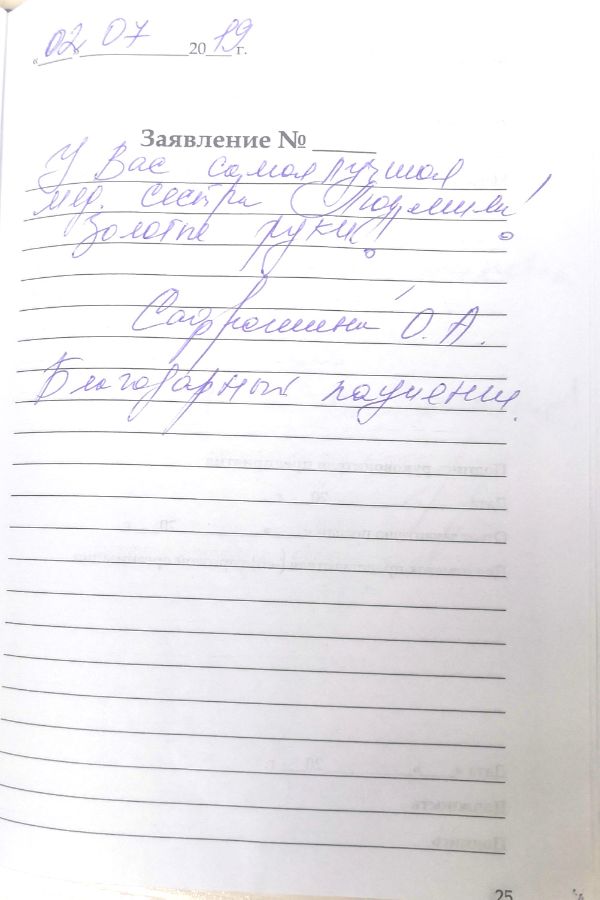 «02» 07 2019 г.
Заявление № ____
У Вас самая лучшая
мед. сестра Людмила!
Золотые руки!
О. А.
Благодарный пациент.
25